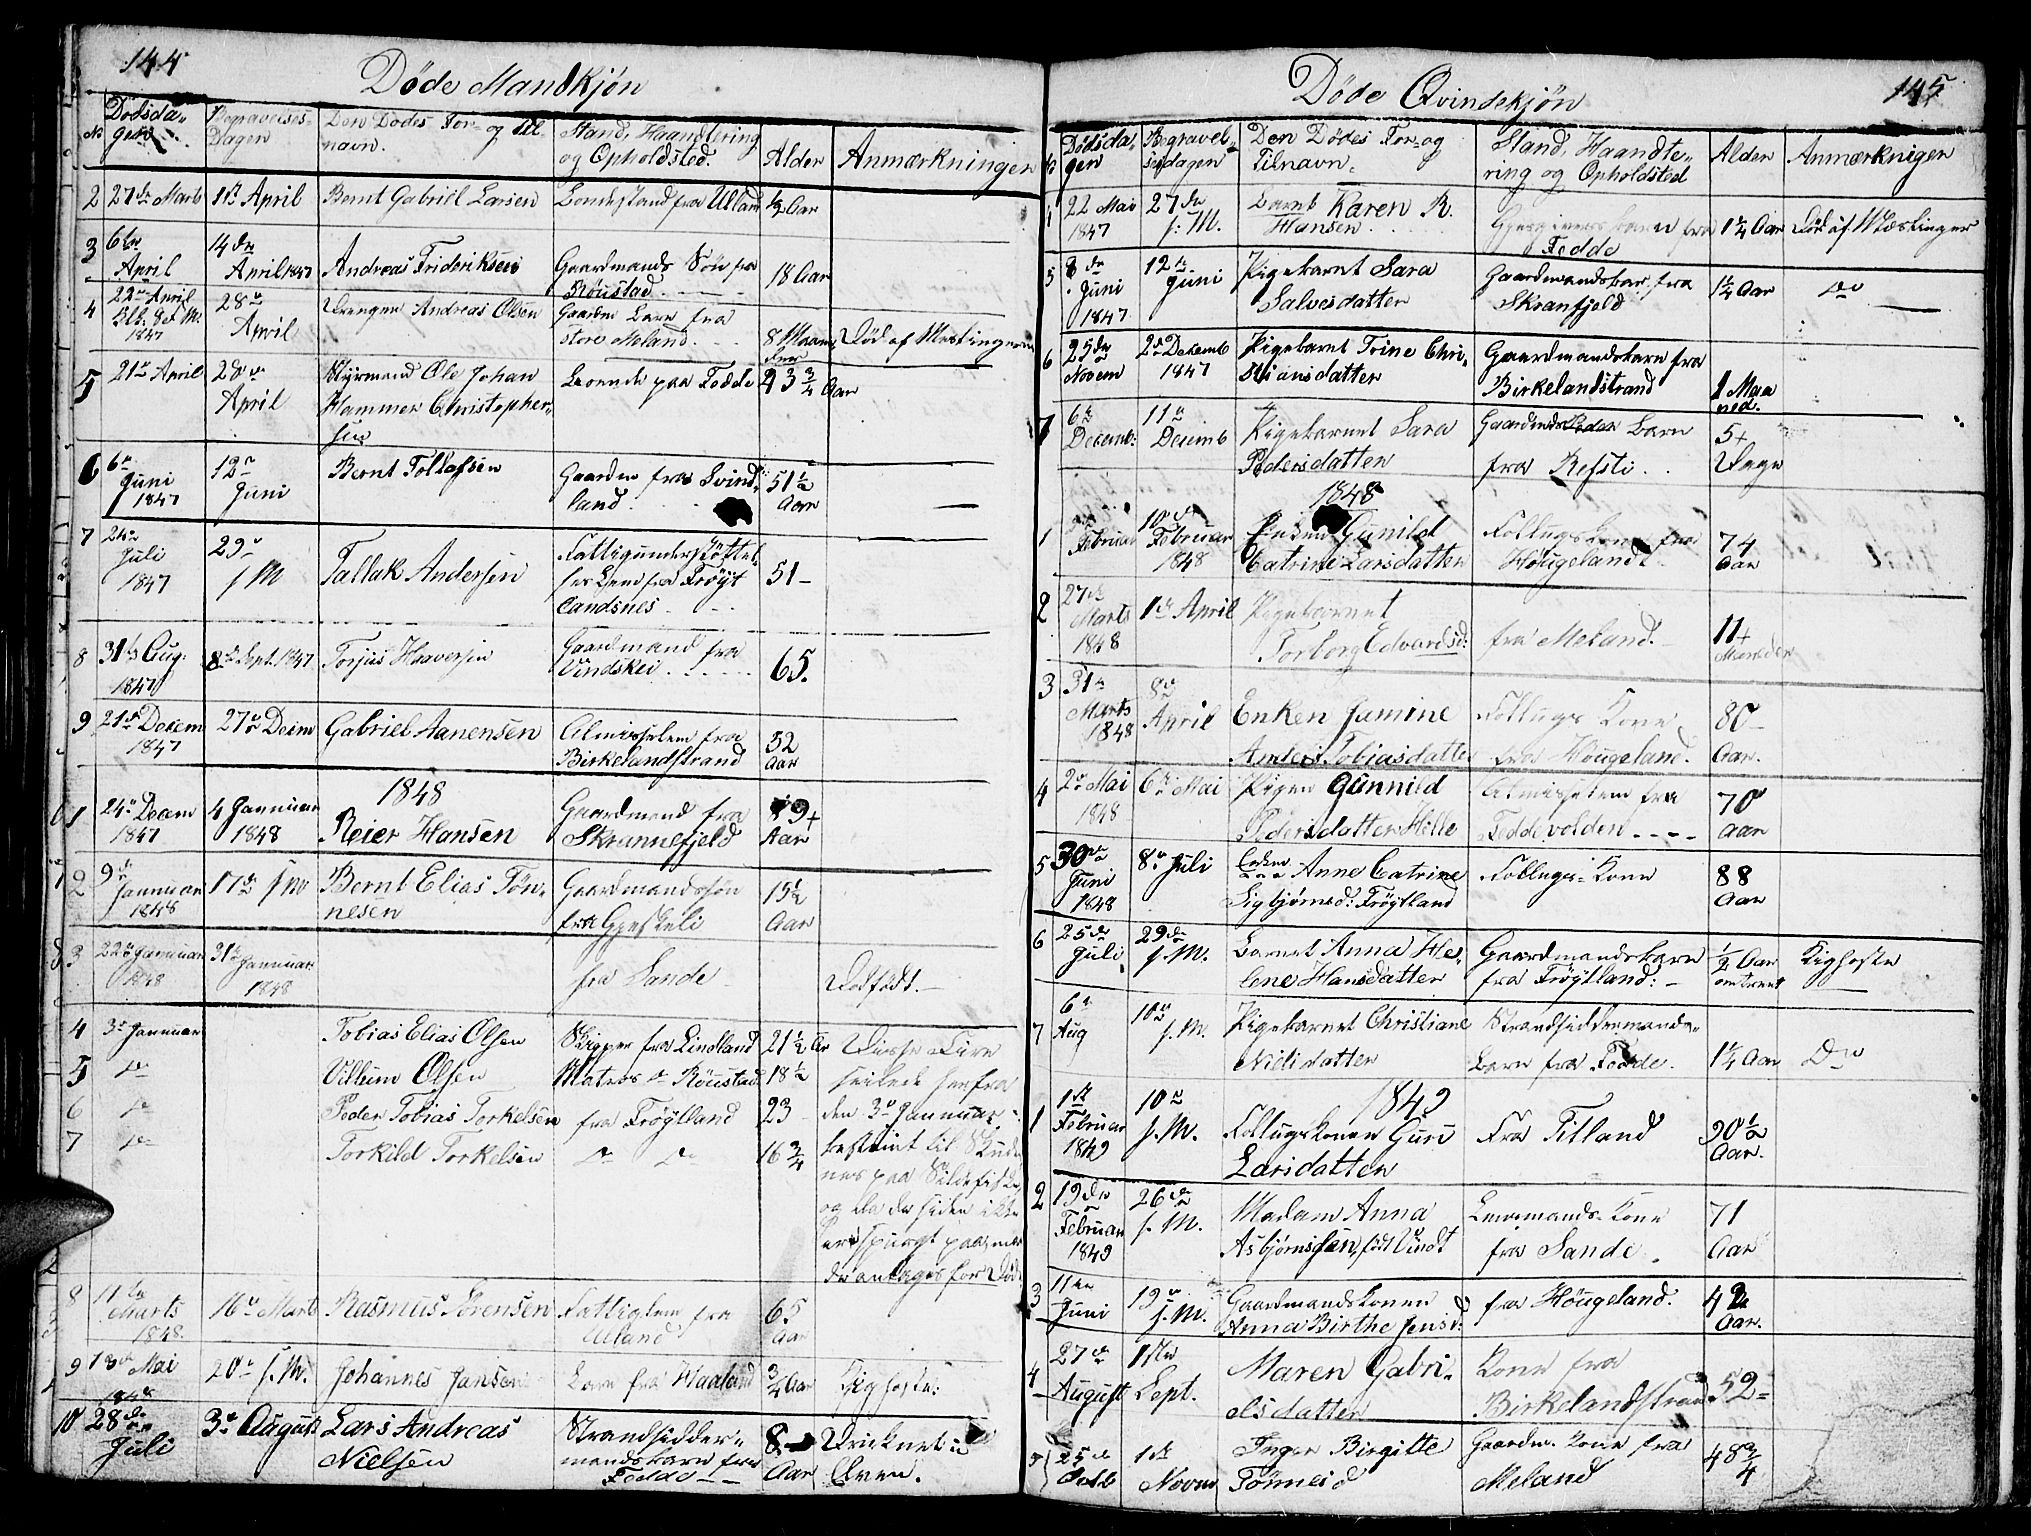 144
Døde Mandkjøn
No Dødsdagen Begravelses-Dagen Den Dødes For- og Tilnavn. Stand, Haandtering og Opholdsted. Alder Anmærkninger
2 27de Marts 1ste April Bernt Gabriel Larsen Bondestand fra Ulland ½ Aar
3 6te April 14de April 1847 Andreas Frideriksen Gaardmands Søn fra Røustad 18 Aar
4 22 April 1847 28de April Drengen Andreas Olsen Gaardm. Barn fra store Meland 8 Maaneder Død af Meslingerne
5 21de April 28de April Styrmand Ole Johan Hammer Christophersen Boende paa Fedde 23 ¾ Aar
6 6te Juni 1847 12te Juni Bernt Tollafsen Gaardm fra Svindland 51 ½ Aar
7 24de Juli 1847 29de s. M Tallak Andersen Fattigunderstøttelses Lem fra Frøytlandsnes 51
8 31te Aug. 1847 8de Sept. 1847 Torjus Haaversen Gaardmand fra Vindskei 65.
9 21de Decem 1847 27de Decem Gabriel Aanensen Almisselem fra Birkelandstrand 52 Aar
1848
1 24de Decem 1847 4 Jannuar 1848 Reier Hansen Gaardmand fra Skrannefjeld 79 Aar
2 9de Jannuar 1848 17de s M Bernt Elias Tønnesen Gaardmandssøn fra Gjeskeli 15 ½ Aar
3 22de Januar 1848 31te Jannuar 1848 fra Sande Dødfødt.
4 3de Jannuar Tobias Elias Olsen Skipper fra Lindland 21 ½ Ar Disse Fire
5 do Villum Olsen Matros do Røustad 18 ½ seilede herfra
6 do Peder Tobias Torkelsen fra Frøytland 23 den 3de Jannuar
7 do Torkild Torkelsen do do 16 ¾ bestemt til Skudenes paa Sildefiske og da de siden ikke er spurgt paa, antages for Døde
8 11te Marts 1848. 16de Marts Rasmus Sørensen Fattiglem fra Uland 65 Aar
9 13de Mai 1848 20de s. M. Johannes Jansen Barn fra Haaland ¾ Aar Kighoste.
10 28de Juli 3de August Lars Andreas Nielsen Strandsiddermandsbarn fra Fedde 8 Aar Druknet i Elven.
145
Døde Qvindekjøn
No Dødsdagen Begravelsesdagen Den Dødes For- og Tilnavn. Stand, Haandtering og Opholdsted Alder Anmærkniger
4 22 Mai 1847 27de s: M. Barnet Karen R. Hansen Gjesgivers barn fra Fedde 1¼ Aar Død af Mæslinger
5 8de Juni 1847 12te Juni Pigebarnet Sara Salvesdatter Gaardmandsbar. fra Skranfjeld 1¼ Aar do
6 25de Novem 2de Decemb 1847 Pigebarnet Trine Christiansdatter Gaardmandsbarn fra Birkelandstrand 1 Maaned.
7 6te Decemb: 11te Decemb Pigebarnet Sara Pedersdatter Gaardmands Barn fra Refsti 5 Dage
1848
1 Februar 10de Februar 1848 Enken Gunild Catrine Larsdatter Follugskone fra Høugelandt 74 Aar
2 27de Marts 1848 1de April Pigebarnet Torborg Edvardsd: fra Meland 11 Maaneder
3 31te Marts 1848 8de April Enken Jamine Anders Tobiasdatter Follugs Kone fra Høugeland. 80 Aar.
4 2de Mai 1848 6te Mai Pigen Gunnild Pedersdatter Hille Almisselem fra Feddevolden 70 Aar
5 30te Juni 1848 8de Juli Enken Anne Catrine Sigbjørnsd: Frøytland Follugs-Kone 88 Aar
6 25de Juli 29de s. M. Barnet Anna Helene Hansdatter Gaardmandsbarn fra Frøytland ½ Aar omtrent Kighoste
7 6te Aug 10de s. M. Pigebarnet Christiane Nielsdatter Strandsiddermands-Barn fra Fedde. 1¼ Aar Do
1849
1 1ste Februar 1849 10de s. M. Follugskonen Guri Larsdatter Fra Titland 90 ½ Aar.
2 19de Februar 1849 26de s. M. Madam Anna Asbjørnsen, født Vindt Kone fra Sande 71 Aar
3 11te Juni 19de s. M. Gaardmandskonen Anna Birthe Jensd: fra Høugeland. 42 Aar.
4 27de August 1ste Sept. Maren Gabrielsdatter Kone fra Birkelandstrand 52
5 25de Octb 1ste Novem Inger Birgitte Tønnesd Gaardm. Kone fra Meland 48 ¾